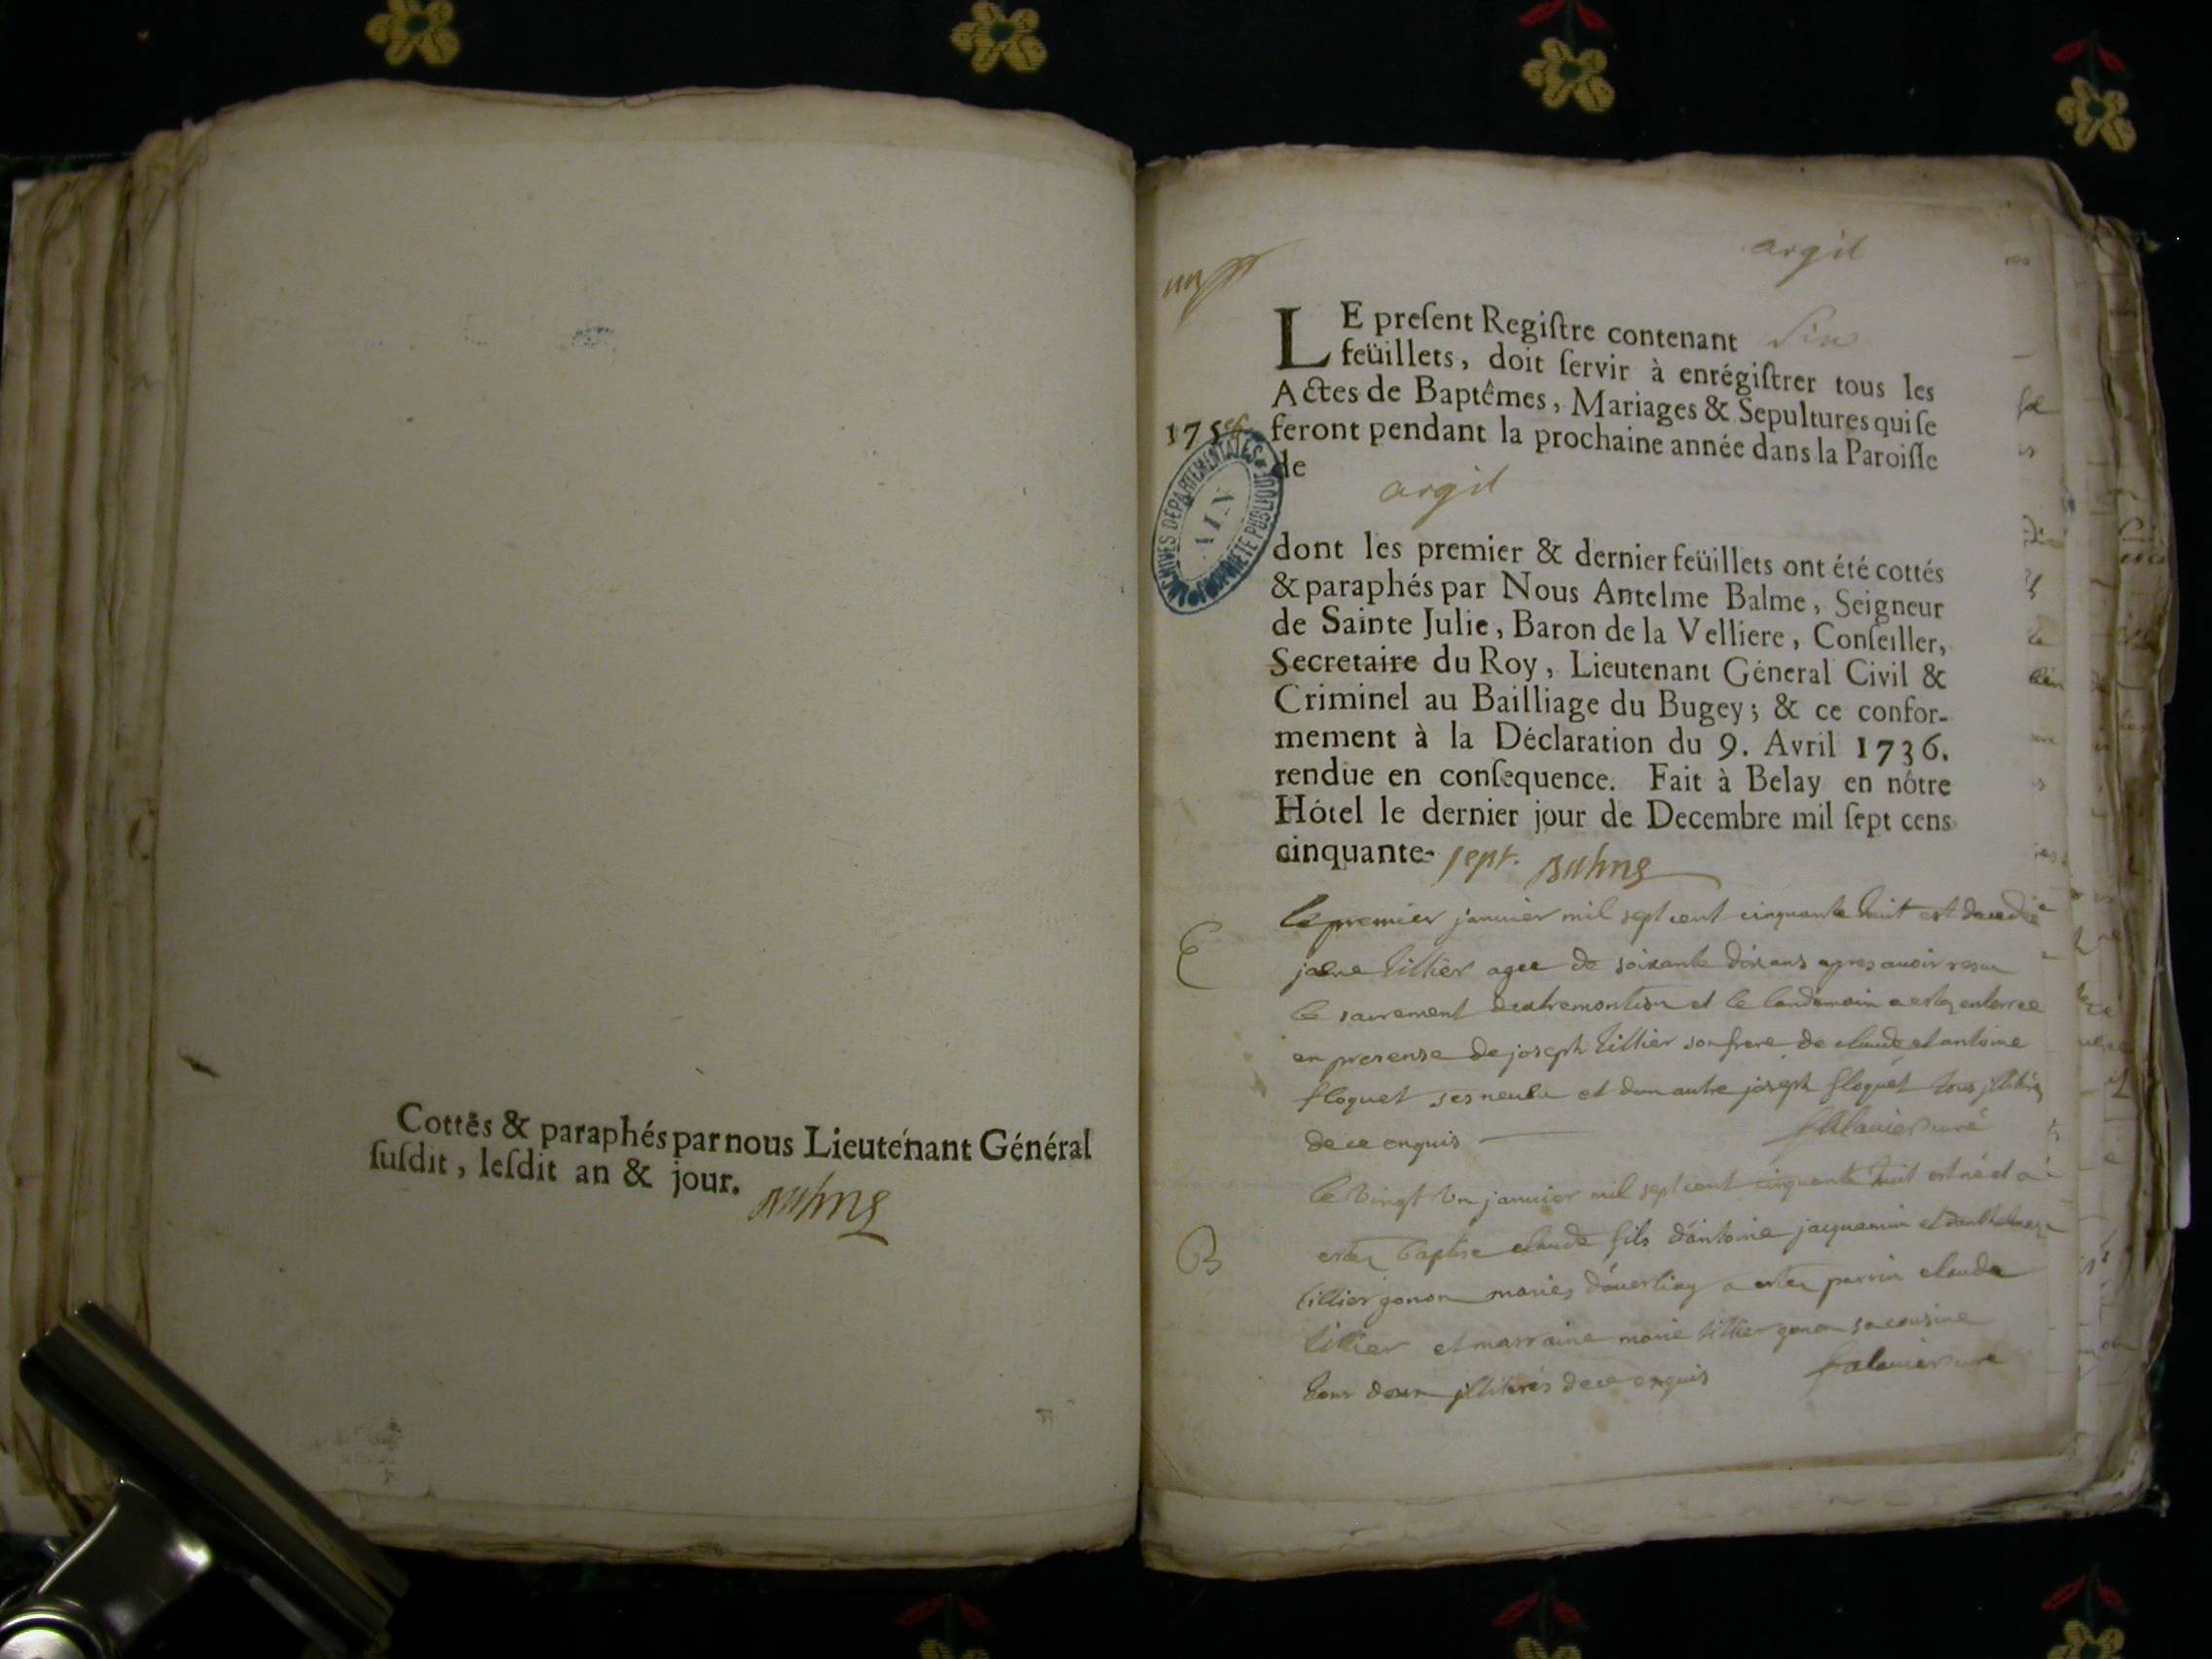 Cottés & paraphés par nous Lieutenant Général
ſuſdit, leſdit an & jour.
Balme
argil
LE preſent Regiſtre contenant Six
feüillets, doit ſervir à enrégiſtrer tous les
Actes de Baptêmes, Mariages & Sepultures qui ſe
1758 feront pendant la prochaine année dans la Paroiſſe
de
argil
ARCHIVES DÉPARTEMENTALES
AIN
PROPRIÉTÉ PUBLIQUE
dont les premier & dernier feüillets ont été cottés
& paraphés par Nous Antelme Balme, Seigneur
de Sainte Julie, Baron de la Velliere, Conſeiller,
Secretaire du Roy, Lieutenant Géneral Civil &
Criminel au Bailliage du Bugey; & ce confor-
mement à la Déclaration du 9. Avril 1736.
rendüe en conſequence. Fait à Belay en nôtre
Hôtel le dernier jour de Decembre mil ſept cens
cinquante- sept. Balme
le premier janvier mil sept cent cinquante huit est decedée
E
tillier agee de soixante dix ans apres avoir resu
le sacrement dextremontion et le landemain a estez enterree
en presense de joseph tillier son frere de claude et antoine
floquet ses neveu et dun autre joseph floquet tous jlliteres
de ce enquis curé
le vingt un janvier mil sept cent cinquante huit est né et a
B
estez baptise claude fils dántoine jacquemin et
tillier gonon mariés a estez parrin claude
tillier et marraine marie tillier gonon sa cousine
tous deux jlliterés de ce enquis curé